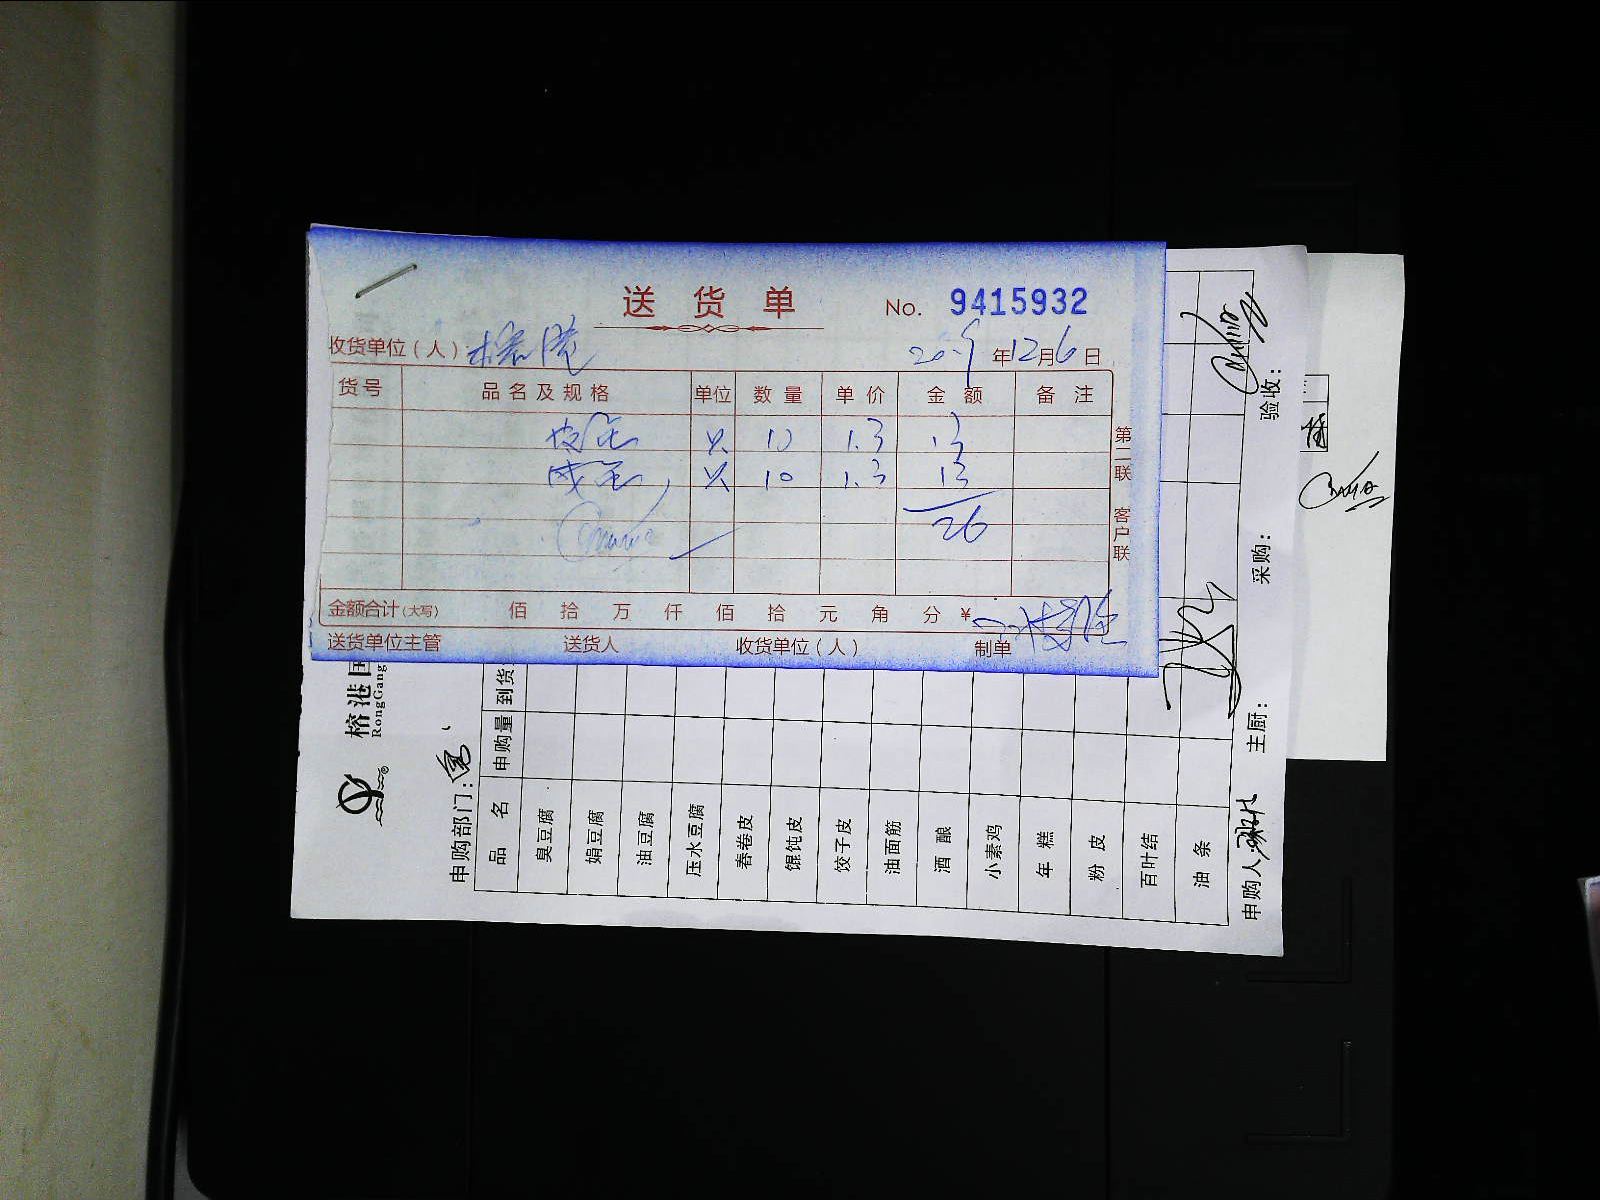 送货单 No. 9415932
收货单位（人） 榕港 2019年12月6日
货号 品名及规格 单位 数量 单价 金额 备注
皮蛋 只 10 1.3 13
咸蛋 只 10 1.3 13
26
金额合计（大写） 佰 拾 万 仟 佰 拾 元 角 分 ¥
送货单位主管 送货人 收货单位（人） 制单
第二联 客户联
榕港国
RongGang
申购部门：
品名 申购量 到货
臭豆腐
娟豆腐
油豆腐
压水豆腐
春卷皮
馄饨皮
饺子皮
油面筋
酒酿
小素鸡
年糕
粉皮
百叶结
油条
申购人： 主厨： 采购： 验收：